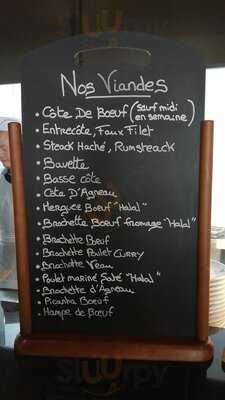 Nos Viandes
• Côte De Bœuf (sauf midi
en semaine)
• Entrecôte, Faux Filet
• Steack Haché, Rumsteack
• Bavette
• Basse côte
• Côte D'Agneau
• Merguez Bœuf "Halal"
• Brochette Bœuf fromage "Halal"
• Brochette Bœuf
• Brochette Poulet Curry
• Brochette Veau
• Poulet mariné Saté "Halal"
• Brochette d'Agneau
• Picanha Bœuf
• Hampe de Bœuf
sluurpy